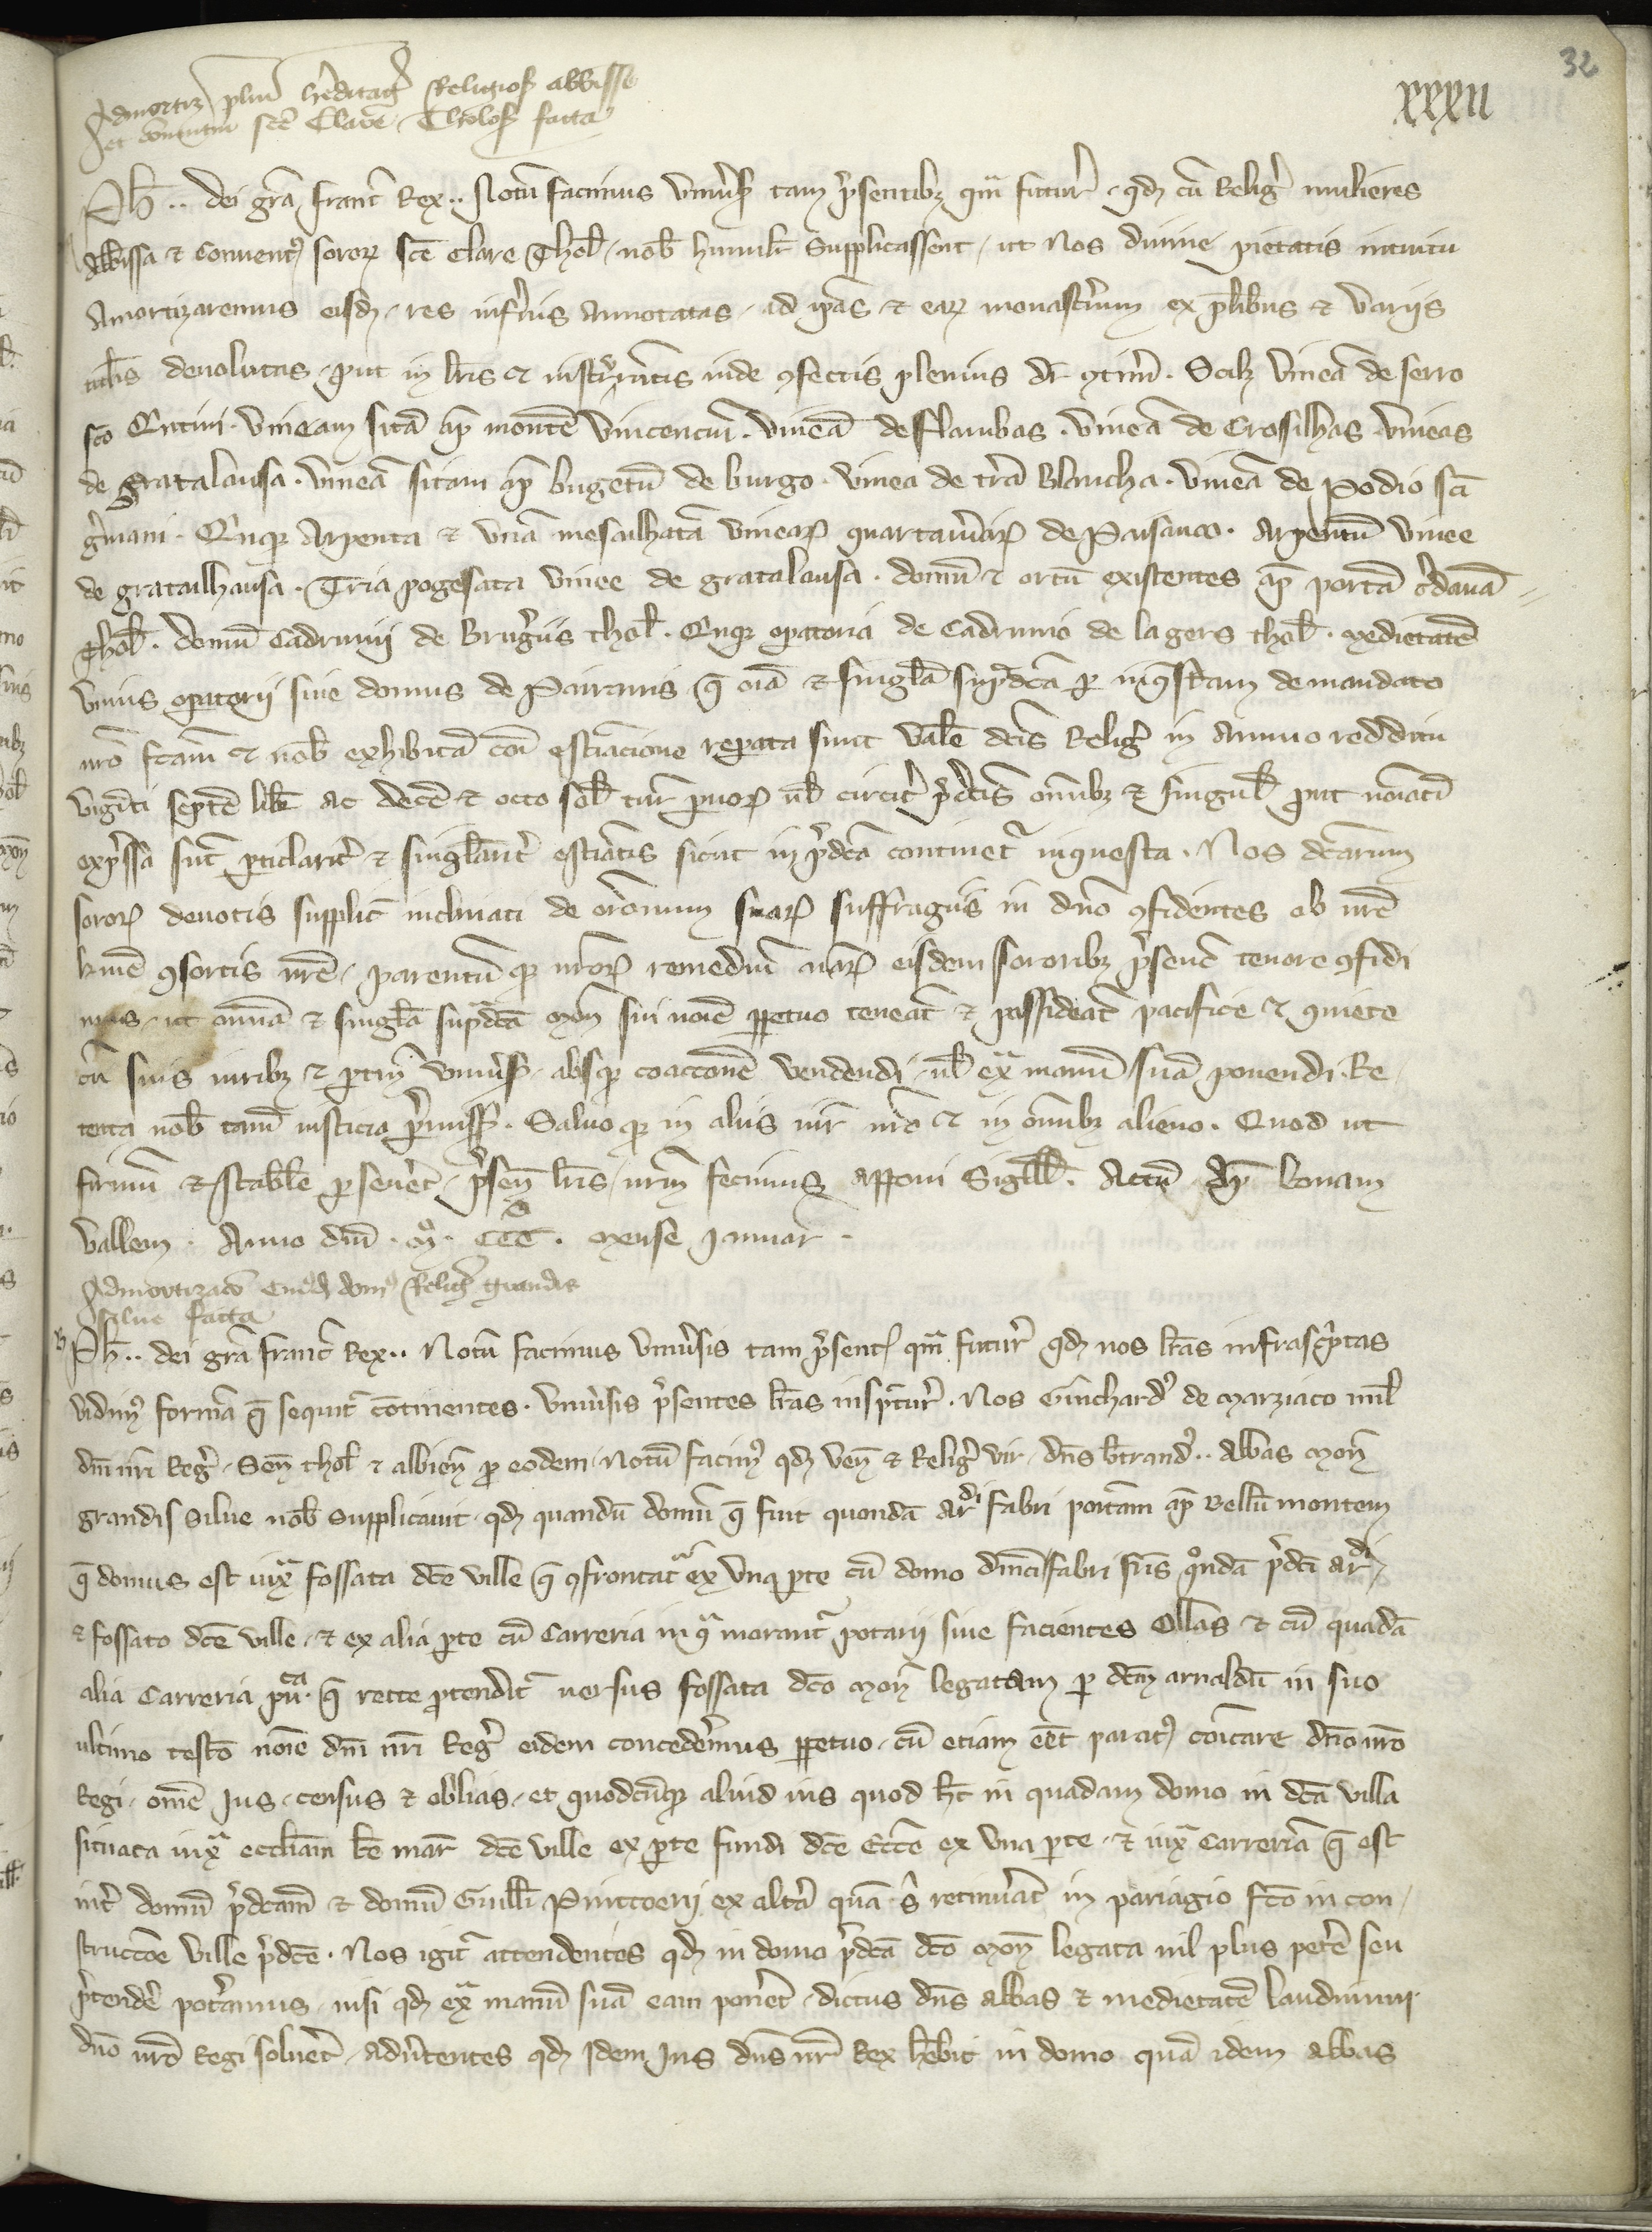 32
xxxii
Admortiz pluriū hereditag̃ Religios abbisse
et conventui sc̃e Clare Tholos facta
Ph̃ .. dei gr̃a franc̃ Rex .. Notũ facimus vniũsis tam p̃sentibꝫ qm̃ futur̃ . qđ cũ Relig̃ mulieres
Abbissa & Conuentꝰ soror̃ sc̃e Clare Thol̃ . nob̃ humilit̃ supplicassent . ut Nos diuine pietatis intuitu
Amortizaremus eisdẽ . res inferius annotatas . ad ip̃as & ear̃ monasteriũ ex pl̃ibus & variis
titl̃is deuolutas . put in l̃ris & instrum̃tis inde ꝯfectis plenius dr̃ ꝯtin̄i . Scilꝫ vineã de serro
sc̃o Quitini . vineam sitã ap̃ montẽ vincenciũ . vineã de Flambas . vineã de Crosilhas . vineas
de gratalausa . vineã sitam ap̃ bugetũ de burgo . vinea de tr̃a Blancha . vineã de Podio sc̃i
g̃mani . Quinqꝫ Arpenta & vnã mesalhatã vinear̃ quartaũiar̃ de Pausauco . Arpentũ vinee
de gratalhausa . Tria pogesata vinee de gratalausa . domũ & ortũ existentes ap̃ portã c̃dauã
Thol̃ . domũ Cadruuij de Brugerijs thol̃ . Quinqꝫ opatoria de Cadruuio de la gers thol̃ . Medietatẽ
vnius opatorij siue domus de Pairanis . q̃ oĩa & singl̃a sup̃dc̃a ꝑ inq̃stam de mandato
nr̃o fc̃am & nob̃ exhibitã cõi estimacione reperta sunt valẽ dc̃is Relig̃ in Annuo redditu
viginti septẽ lib̃ ac decẽ & octo sol̃ tur̃ paruor̃ ul̃ circit̃ p̃dc̃is om̃ibꝫ & singul̃ put noĩati
exp̃ssa sũt ꝑticularit̃ & singl̃arit̃ estimatis sicut in p̃dc̃a continet̃ inquesta . Nos dc̃arum
soror̃ deuotis supplic̃ inclinati de or̃onum suar̃ suffragiis in dño ꝯfidentes ob nr̃e
k̃me ꝯsortis nr̃e . parentũ qꝫ nr̃or̃ remediũ aĩar̃ eisdem sororibꝫ p̃senc̃ tenore ꝯcedi
mus . ut omnia & singl̃a sup̃dc̃a Moñ sui noĩe ꝑpetuo teneãt & possideãt pacifice & quiete
cũ suis iuribꝫ & ꝑtiñ vniũsis . absqꝫ coacc̃one vendendi . ul̃ ex̃ manũ suã ponendi . Re
tenta nob̃ tam̃ iusticia p̃missor̃ . Saluo qꝫ in aliis iur̃ nr̃o & in om̃ibꝫ alieno . Quod ut
firmũ & stabile ꝑseueret . p̃señ l̃ris . nr̃m fecimus apponi Sigill̃ . Actũ ap̃ bonam
vallem . Anno dñi . m̊ . CCC̊ . mense Januar .
Admortizac̃o cuiusdã domꝰ Relig̃ grandis
silue facta
Ph̃ .. dei gr̃a franc̃ Rex .. Notũ facimus vniũsis tam p̃sentibꝫ qm̃ futur̃ qđ nos l̃ras infrasc̃ptas
vidimꝰ formã q̃ sequit̃ cõtinentes . vniũsis p̃sentes l̃ras inspectur̃ . Nos Guichardꝰ de Marziaco mil̃
dñi nr̃i Reg̃ . Señ thol̃ & albieñ ꝑ eodem . Notũ facimꝰ qđ veñ & Relig̃ vir . dñs b̃trandꝰ .. Abbas Moñ
grandis silue nob̃ supplicauit . qđ quandũ domũ q̃ fuit quondã ar̃di fabri positam ap̃ Bellũ montem
q̃ domus est iux̃ fossata dc̃e ville q̃ ꝯfrontat̃ ex vnq̃ ꝑte cũ domo dñici fabri fr̃is qõndã p̃dc̃i ar̃di
& fossato dc̃e ville . & ex alia ꝑte cũ Carreria in q̃ morant̃ potarij siue facientes ollas & cũ quadã
alia Carreria pu.ca q̃ recte ꝓtendit̃ uersus fossata dc̃o Moñ legatam ꝑ dc̃m arnaldũ in suo
ultimo testo noĩe dñi nr̃i Reg̃ eidem concederemus ꝑpetuo . cũ etiam eẽt paratꝰ coĩcare dc̃o nr̃o
Regi . om̃e Jus . census & oblias . et quodcũqꝫ aliud ius quod h̃t in quadam domo in dc̃a villa
situata iux̃ ecc̃liam bẽ mar̃ dc̃e ville ex ꝑte fundi dc̃e Ecc̃e ex vna ꝑte . & iux̃ Carreriã q̃ est
int̃ domũ p̃dc̃am & domũ Guill̃i Puittoerij ex altã quã s̃ retinuãt in pariagio fc̃o in con
structoe ville p̃dc̃e . Nos igit̃ attendentes qđ in domo p̃dc̃a dc̃o Moñ legata nil plus peter̃ seu
p̃tender̃ poteramus . nisi qđ ex̃ manũ suã eam poneret . dictus dñs abbas & medietatẽ laudimii
dño nr̃o Regi solueret . adũtentes qđ Idem Jus dñs nr̃ Rex h̃ebit in domo quã idem abbas